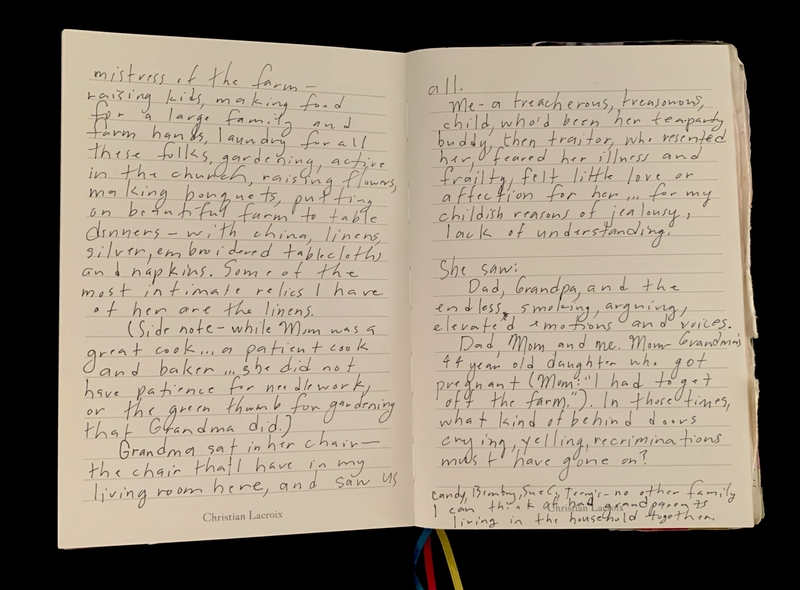 mistress of the farm—
raising kids, making food
for a large family and
farm hands, laundry for all
these folks, gardening, active
in the church, raising flowers,
making bouquets, putting
on beautiful farm to table
dinners – with china, linens,
silver, embroidered tablecloths
and napkins. Some of the
most intimate relics I have
of her are the linens.
(Side note – while Mom was a
great cook... a patient cook
and baker ... she did not
have patience for needlework,
or the green thumb for gardening
that Grandma did.)
Grandma sat in her chair—
the chair that I have in my
living room here, and saw us
Christian Lacroix
all.
Me – a treacherous, treasonous,
child, who'd been her teaparty
buddy, then traitor, who resented
her, feared her illness and
frailty, felt little love or
affection for her ... for my
childish reasons of jealousy,
lack of understanding.
She saw:
Dad, Grandpa, and the
endless smoking, arguing,
elevated emotions and voices.
Dad, Mom and me. Mom – Grandma's
44 year old daughter who got
pregnant (Mom: "I had to get
off the farm."). In those times,
what kind of behind doors
crying, yelling, recriminations
must have gone on?
Candy, Sue C, – no other family
I can think of had grandparents
living in the household together.
Christian Lacroix